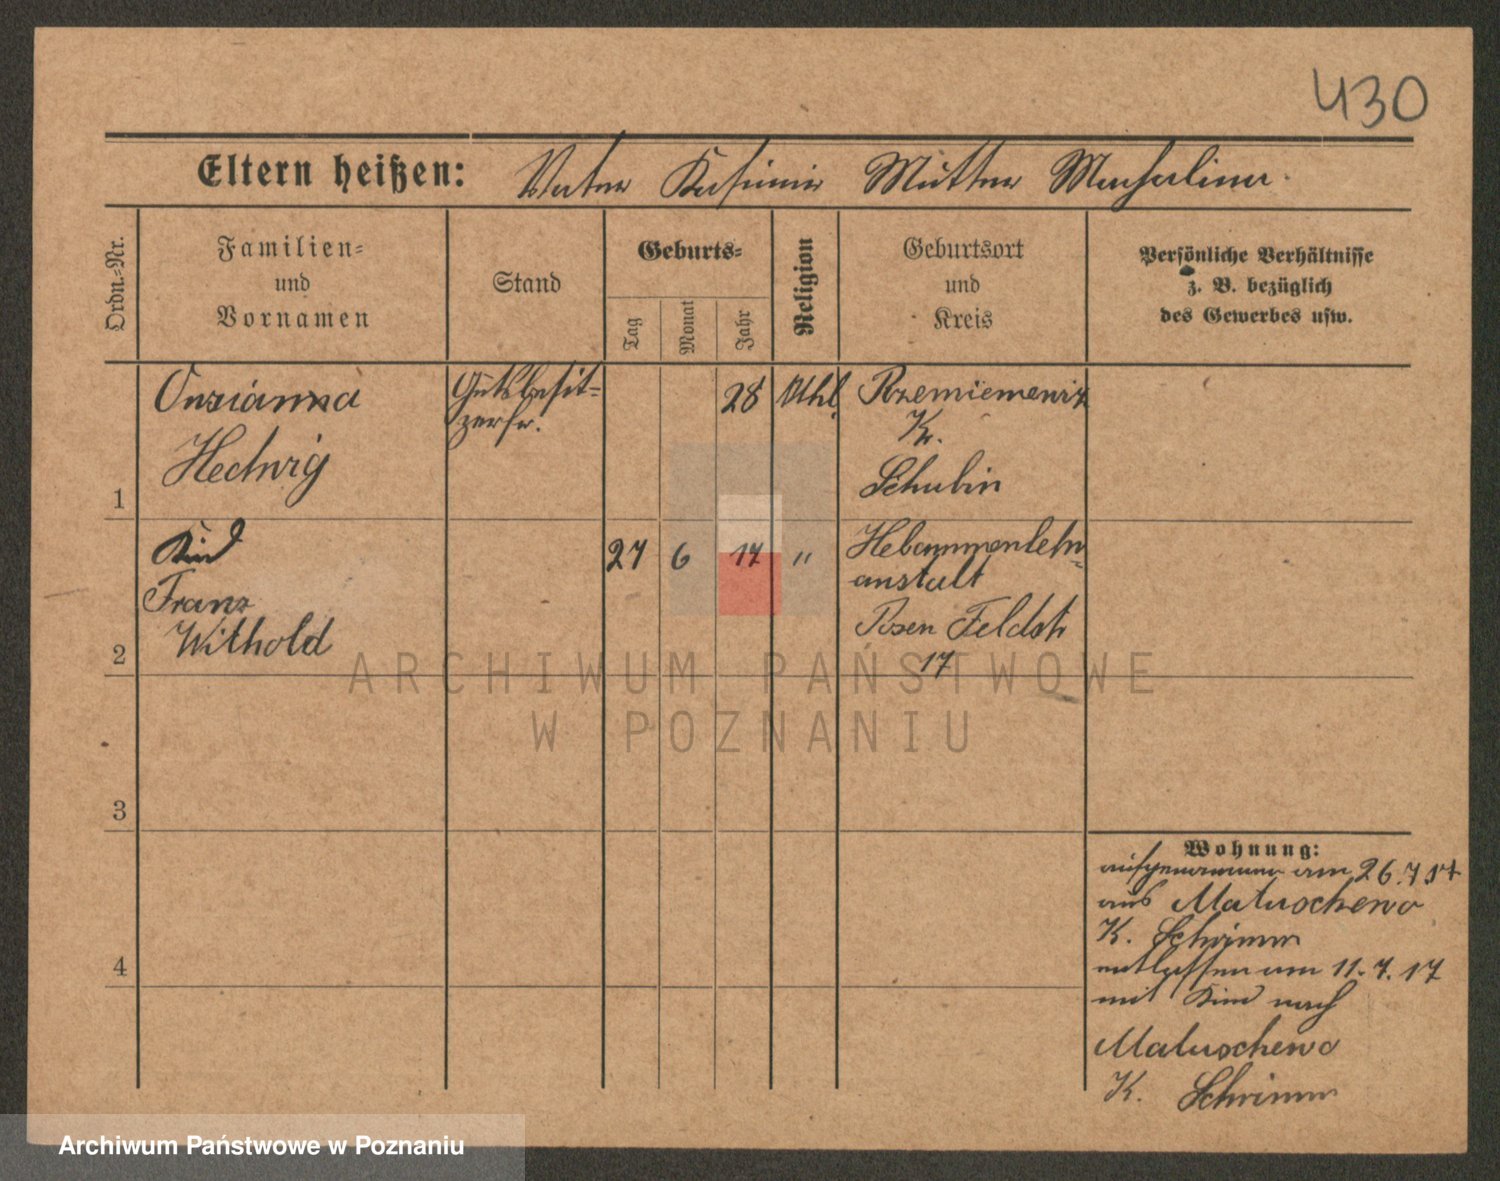 430
Eltern heißen: Vater Kasimir Mutter
Ordn.=Nr.
Familien=
und
Vornamen
Stand
Geburts=
Tag
Monat
Jahr
Religion
Geburtsort
und
Kreis
Persönliche Verhältnisse
z. B. bezüglich
des Gewerbes usw.
1
Hedwig
Gutsbesit=
zerfr.
28
Kthl.
Kr.
Schubin
2
Kind
Franz
Withold
27
6
17
"
Hebammenlehr=
anstalt
Posen Feldstr
17
3
4
Wohnung:
aufgenommen am 26.
aus Matuschewo
K. Schrimm
entlassen am 11. 7. 17
mit Kind nach
Matuschewo
K. Schrimm
ARCHIWUM PAŃSTWOWE
W POZNANIU
Archiwum Państwowe w Poznaniu